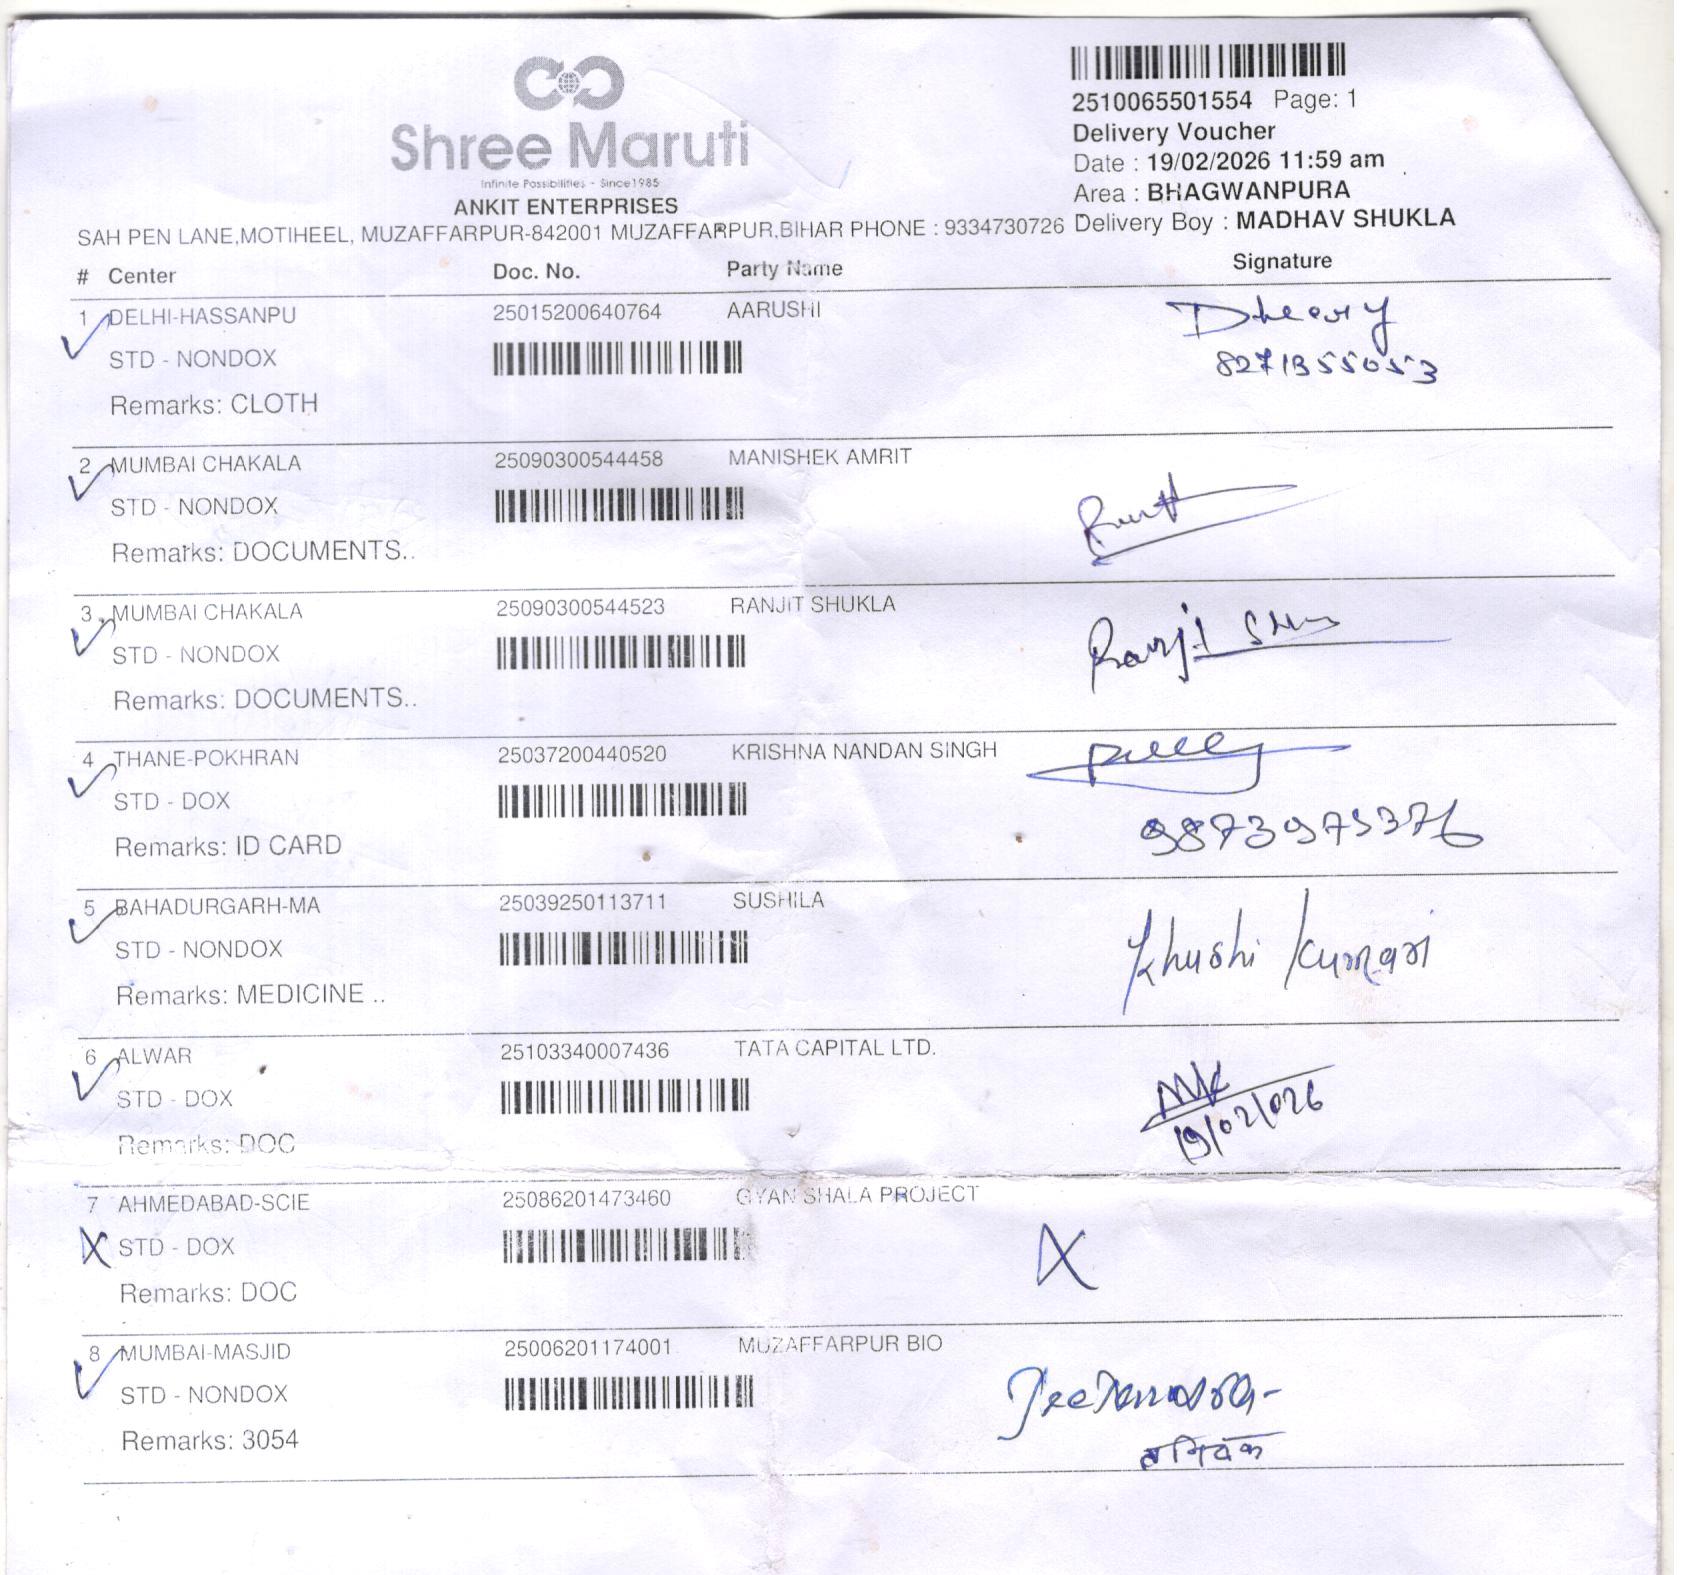 Shree Maruti
Infinite Possibilities - Since1985
ANKIT ENTERPRISES
SAH PEN LANE,MOTIHEEL, MUZAFFARPUR-842001 MUZAFFARPUR,BIHAR PHONE : 9334730726
2510065501554 Page: 1
Delivery Voucher
Date : 19/02/2026 11:59 am
Area : BHAGWANPURA
Delivery Boy : MADHAV SHUKLA
# Center Doc. No. Party Name Signature
1 DELHI-HASSANPU 25015200640764 AARUSHI
STD - NONDOX 8271355053
Remarks: CLOTH
2 MUMBAI CHAKALA 25090300544458 MANISHEK AMRIT
STD - NONDOX
Remarks: DOCUMENTS..
3 MUMBAI CHAKALA 25090300544523 RANJIT SHUKLA
STD - NONDOX Ranjit
Remarks: DOCUMENTS..
4 THANE-POKHRAN 25037200440520 KRISHNA NANDAN SINGH
STD - DOX
Remarks: ID CARD 9873975376
5 BAHADURGARH-MA 25039250113711 SUSHILA
STD - NONDOX Khushi Kumari
Remarks: MEDICINE ..
6 ALWAR 25103340007436 TATA CAPITAL LTD.
STD - DOX
19/02/026
Remarks: DOC
7 AHMEDABAD-SCIE 25086201473460 GYAN SHALA PROJECT
X STD - DOX X
Remarks: DOC
8 MUMBAI-MASJID 25006201174001 MUZAFFARPUR BIO
STD - NONDOX
Remarks: 3054